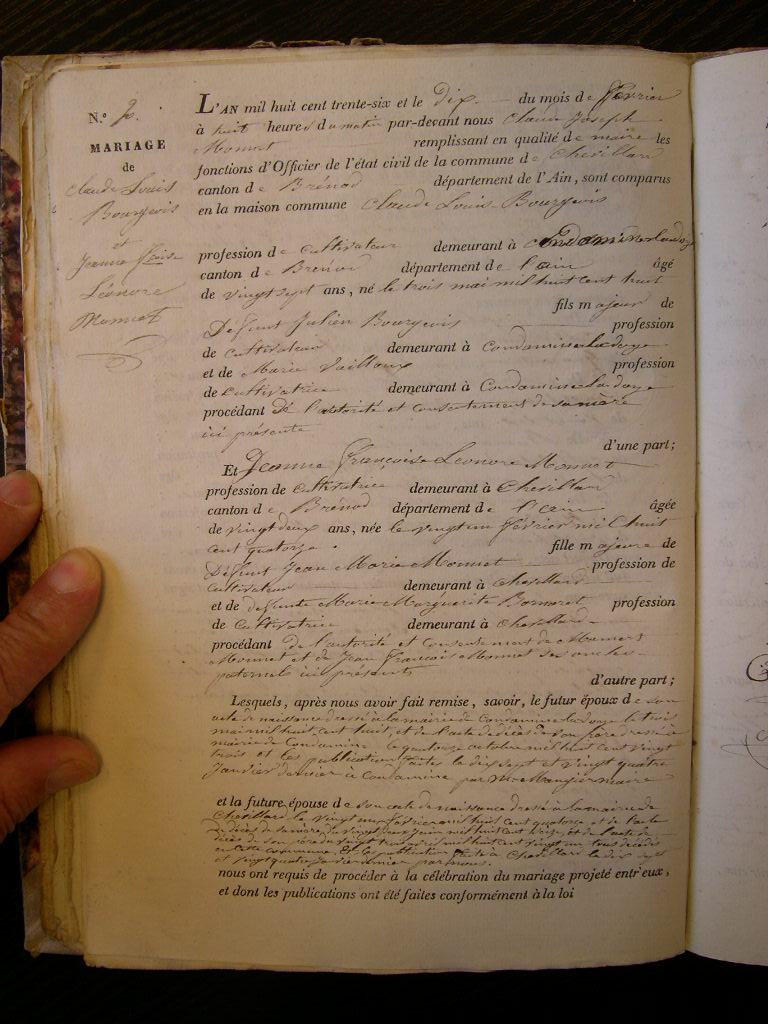 N.º 2.
MARIAGE
de
Claude Louis
Bourgeois
et
Jeanne Fçoise
Léonore
Monnet
L'AN mil huit cent trente-six et le Dix du mois de février
à huit heures du matin par-devant nous Claude Joseph
Monnet remplissant en qualité de maire les
fonctions d'Officier de l'état civil de la commune de Chevillard
canton de Brénod département de l'Ain, sont comparus
en la maison commune Claude Louis Bourgeois
profession de cultivateur demeurant à Condamine la doye
canton de Brenod département de l'ain âgé
de vingt sept ans, né le trois mai mil huit cent huit
fils majeur de
Défunt Julien Bourgeois profession
de cultivateur demeurant à Condamine la doye
et de Marie Vailloux profession
de Cultivatrice demeurant à Condamine la doye
procédant de l'autorité et consentement de sa mère
ici présente
d'une part;
Et Jeanne Françoise Leonore Monnet
profession de cultivatrice demeurant à Chevillard
canton de Brénod département de l'ain âgée
de vingt deux ans, née le vingt un février mil huit
cent quatorze. fille majeure de
Défunt Jean Marie Monnet profession de
cultivateur demeurant à Chevillard
et de defunte Marie Marguerite Bonnoret profession
de Cultivatrice demeurant à Chevillard
procédant de l'autorité et Consentement de
Monnet et de Jean François Monnet ses oncles
paternels ici présents
d'autre part;
Lesquels, après nous avoir fait remise, savoir, le futur époux de son
acte de naissance dressé à la mairie de Condamine la doye le trois
mai mil huit cent huit, et de l'acte de décès de son père dressé à
mairie de Condamine le quatorze octobre mil huit cent vingt
trois et les publications faites le dix sept et vingt quatre
Janvier dernier à Condamine par Mr maire
et la future épouse de son acte de naissance dressé à la mairie de
Chevillard le vingt un février mil huit cent quatorze et de l'acte
de décès de sa mère du vingt deux Juin mil huit cent et de l'acte de
décès de son père du vingt avril mil huit cent vingt un tous décédés
en cette commune. Et les publications faites à Chevillard le dix sept
et vingt quatre janvier dernier par nous.
nous ont requis de procéder à la célébration du mariage projeté entr'eux,
et dont les publications ont été faites conformément à la loi